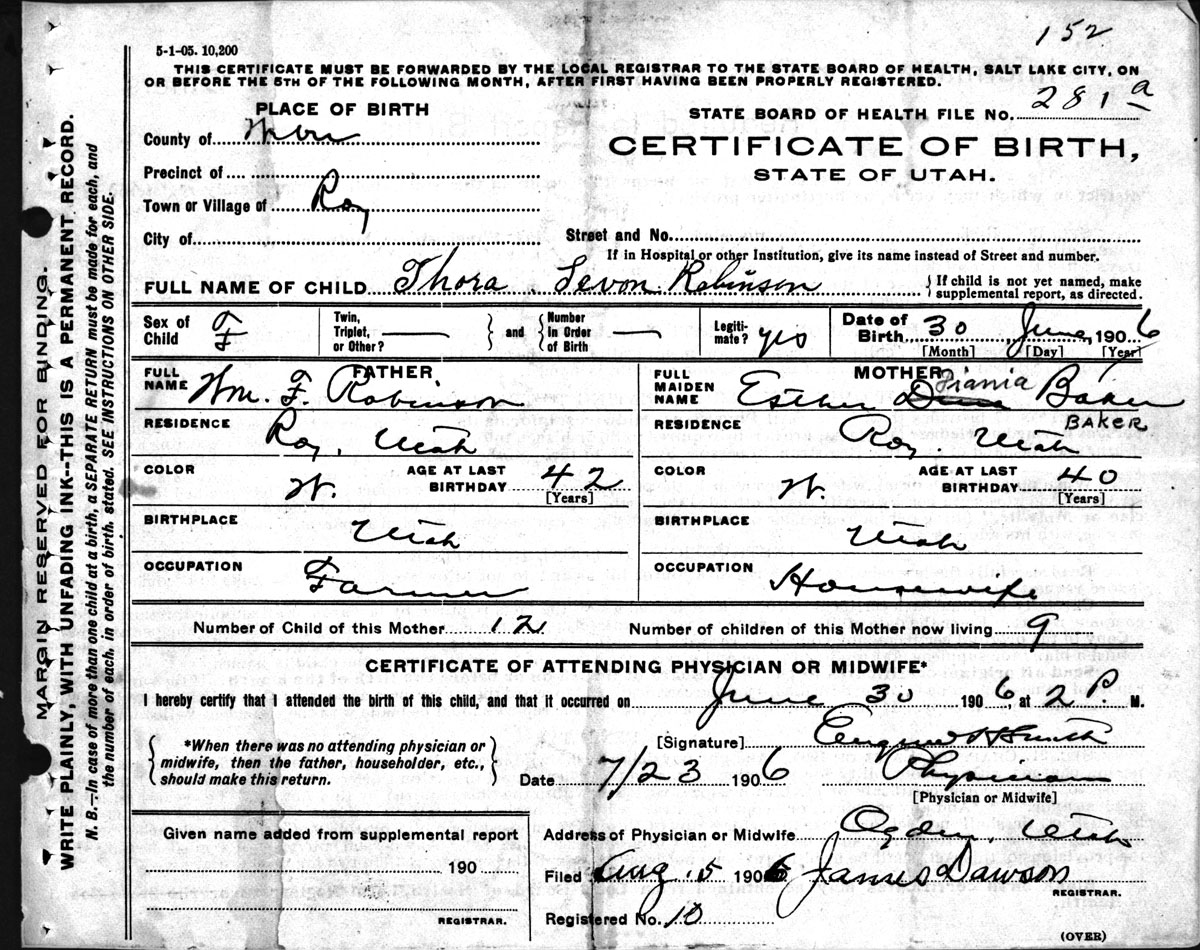 152
5-1-05. 10,200
THIS CERTIFICATE MUST BE FORWARDED BY THE LOCAL REGISTRAR TO THE STATE BOARD OF HEALTH, SALT LAKE CITY, ON
OR BEFORE THE 5TH OF THE FOLLOWING MONTH, AFTER FIRST HAVING BEEN PROPERLY REGISTERED.
PLACE OF BIRTH
STATE BOARD OF HEALTH FILE NO. 281 a
County of
CERTIFICATE OF BIRTH,
STATE OF UTAH.
Precinct of
Town or Village of Roy
City of
Street and No.
If in Hospital or other Institution, give its name instead of Street and number.
FULL NAME OF CHILD Thora Levon Robinson
If child is not yet named, make
supplemental report, as directed.
Sex of Child F
Twin, Triplet, or Other? —
and
Number In Order of Birth —
Legiti-mate? yes
Date of Birth 30 June, 1906
[Month] [Day] [Year]
FATHER
FULL NAME Wm. F. Robinson
RESIDENCE Roy, Utah
COLOR W.
AGE AT LAST BIRTHDAY 42
[Years]
BIRTHPLACE Utah
OCCUPATION Farmer
MOTHER
FULL MAIDEN NAME Esther Diania Baker
BAKER
RESIDENCE Roy. Utah
COLOR W.
AGE AT LAST BIRTHDAY 40
[Years]
BIRTHPLACE Utah
OCCUPATION Housewife
Number of Child of this Mother 12
Number of children of this Mother now living 9
CERTIFICATE OF ATTENDING PHYSICIAN OR MIDWIFE*
I hereby certify that I attended the birth of this child, and that it occurred on June 30 1906, at 2 P. M.
*When there was no attending physician or
midwife, then the father, householder, etc.,
should make this return.
[Signature] Eugene H Smith
Date 7/23 1906 Physician
[Physician or Midwife]
Given name added from supplemental report
190
REGISTRAR.
Address of Physician or Midwife Ogden, Utah
Filed Aug. 5 1906 James Dawson
REGISTRAR.
Registered No. 10
(OVER)
MARGIN RESERVED FOR BINDING.
WRITE PLAINLY, WITH UNFADING INK--THIS IS A PERMANENT RECORD.
N. B.—In case of more than one child at a birth, a SEPARATE RETURN must be made for each, and
the number of each, in order of birth, stated. SEE INSTRUCTIONS ON OTHER SIDE.